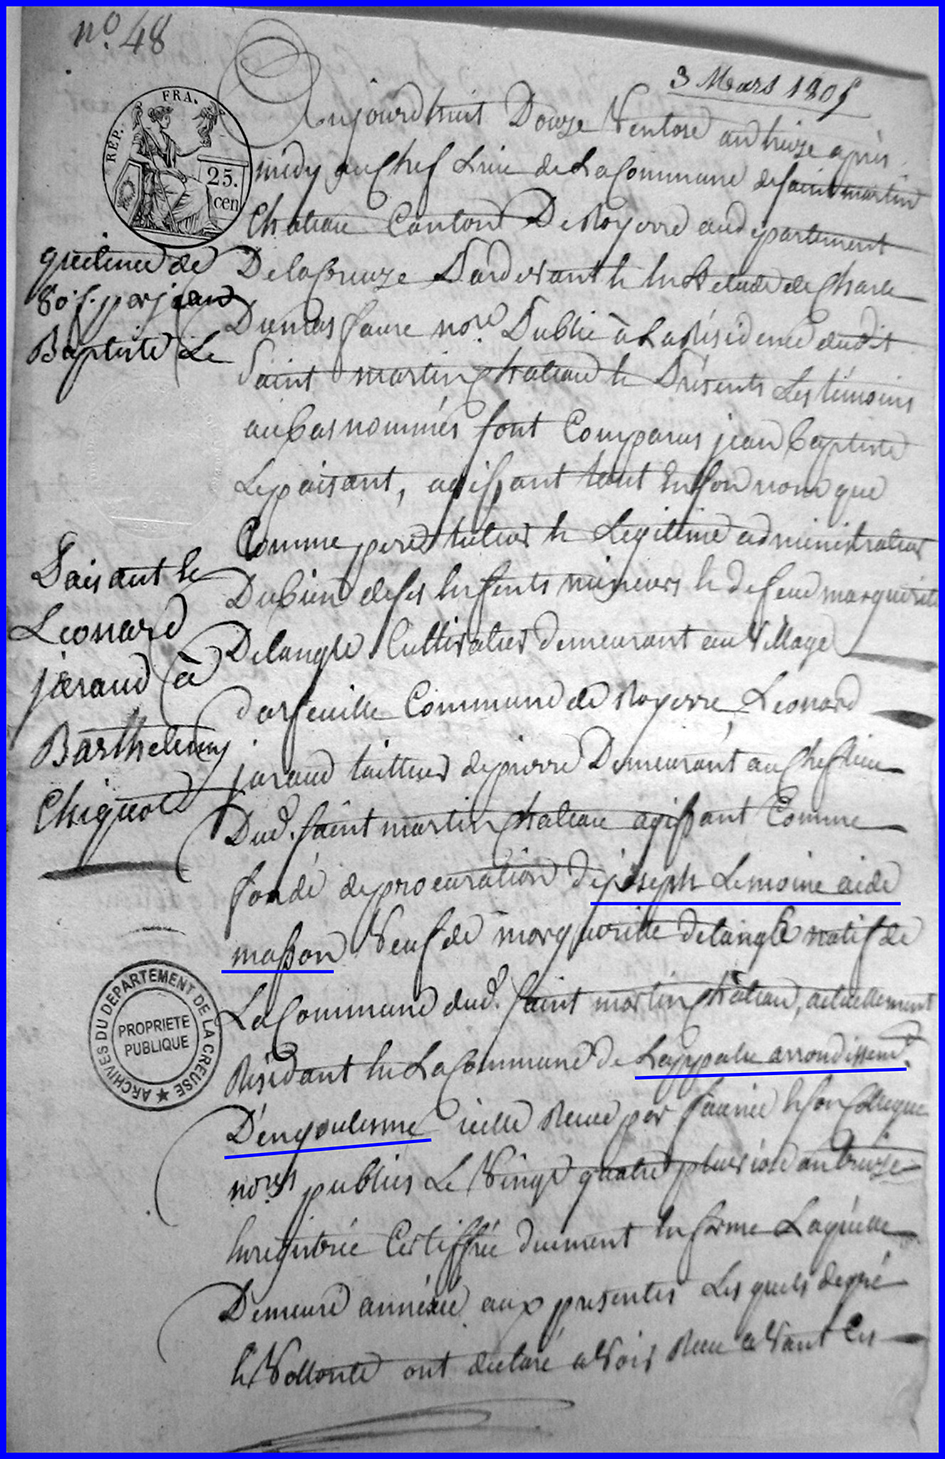 n.º 48
3 Mars 1805
REP. FRA.
25. cen
Aujourdhuit Douze Ventose an treize après
midy au Chef Lieu de La Commune de saint martin
Chateau Canton De Royerre au departement
De la Creuze Pardevant
Dumas faure no.re Public à La Résidence dudit
Saint martin chateau et Présents Les témoins
au bas nommés font Comparus jean baptiste
Lepaisant, agissant tant en son nom que
Comme pere tuteur et Legitime administrateur
Du bien de ses enfents mineurs et de feue marguerite
Delangle Cultivateur demeurant au Village
darfeuille Commune de Royerre, Leonard
jaraud tailleur de pierre Demeurant au Chef Lieu
Dud. saint martin chateau agissant Comme
fondé de procuration de joseph Lemoine aide
masson Veuf de marguerite delangle natif de
La Commune dud. saint martin chateau, actuellement
Résidant en La Commune de arrondissem.t
D'engoulesme icelle Recue par et son Collegue
no.res publics Le Vingt quatre pluviose an treize
enregistrée Certiffiée duement en forme Laquelle
Demeure annéxée aux presentes Les quels de gré
et Vollonté ont declaré avoir Recu avant Ces
quitence de
80 f. par jean
Baptiste Le
Paisant et
Leonard
jaraud à
Barthelemy
Chignot
ARCHIVES DU DEPARTEMENT DE LA CREUSE
PROPRIETE
PUBLIQUE